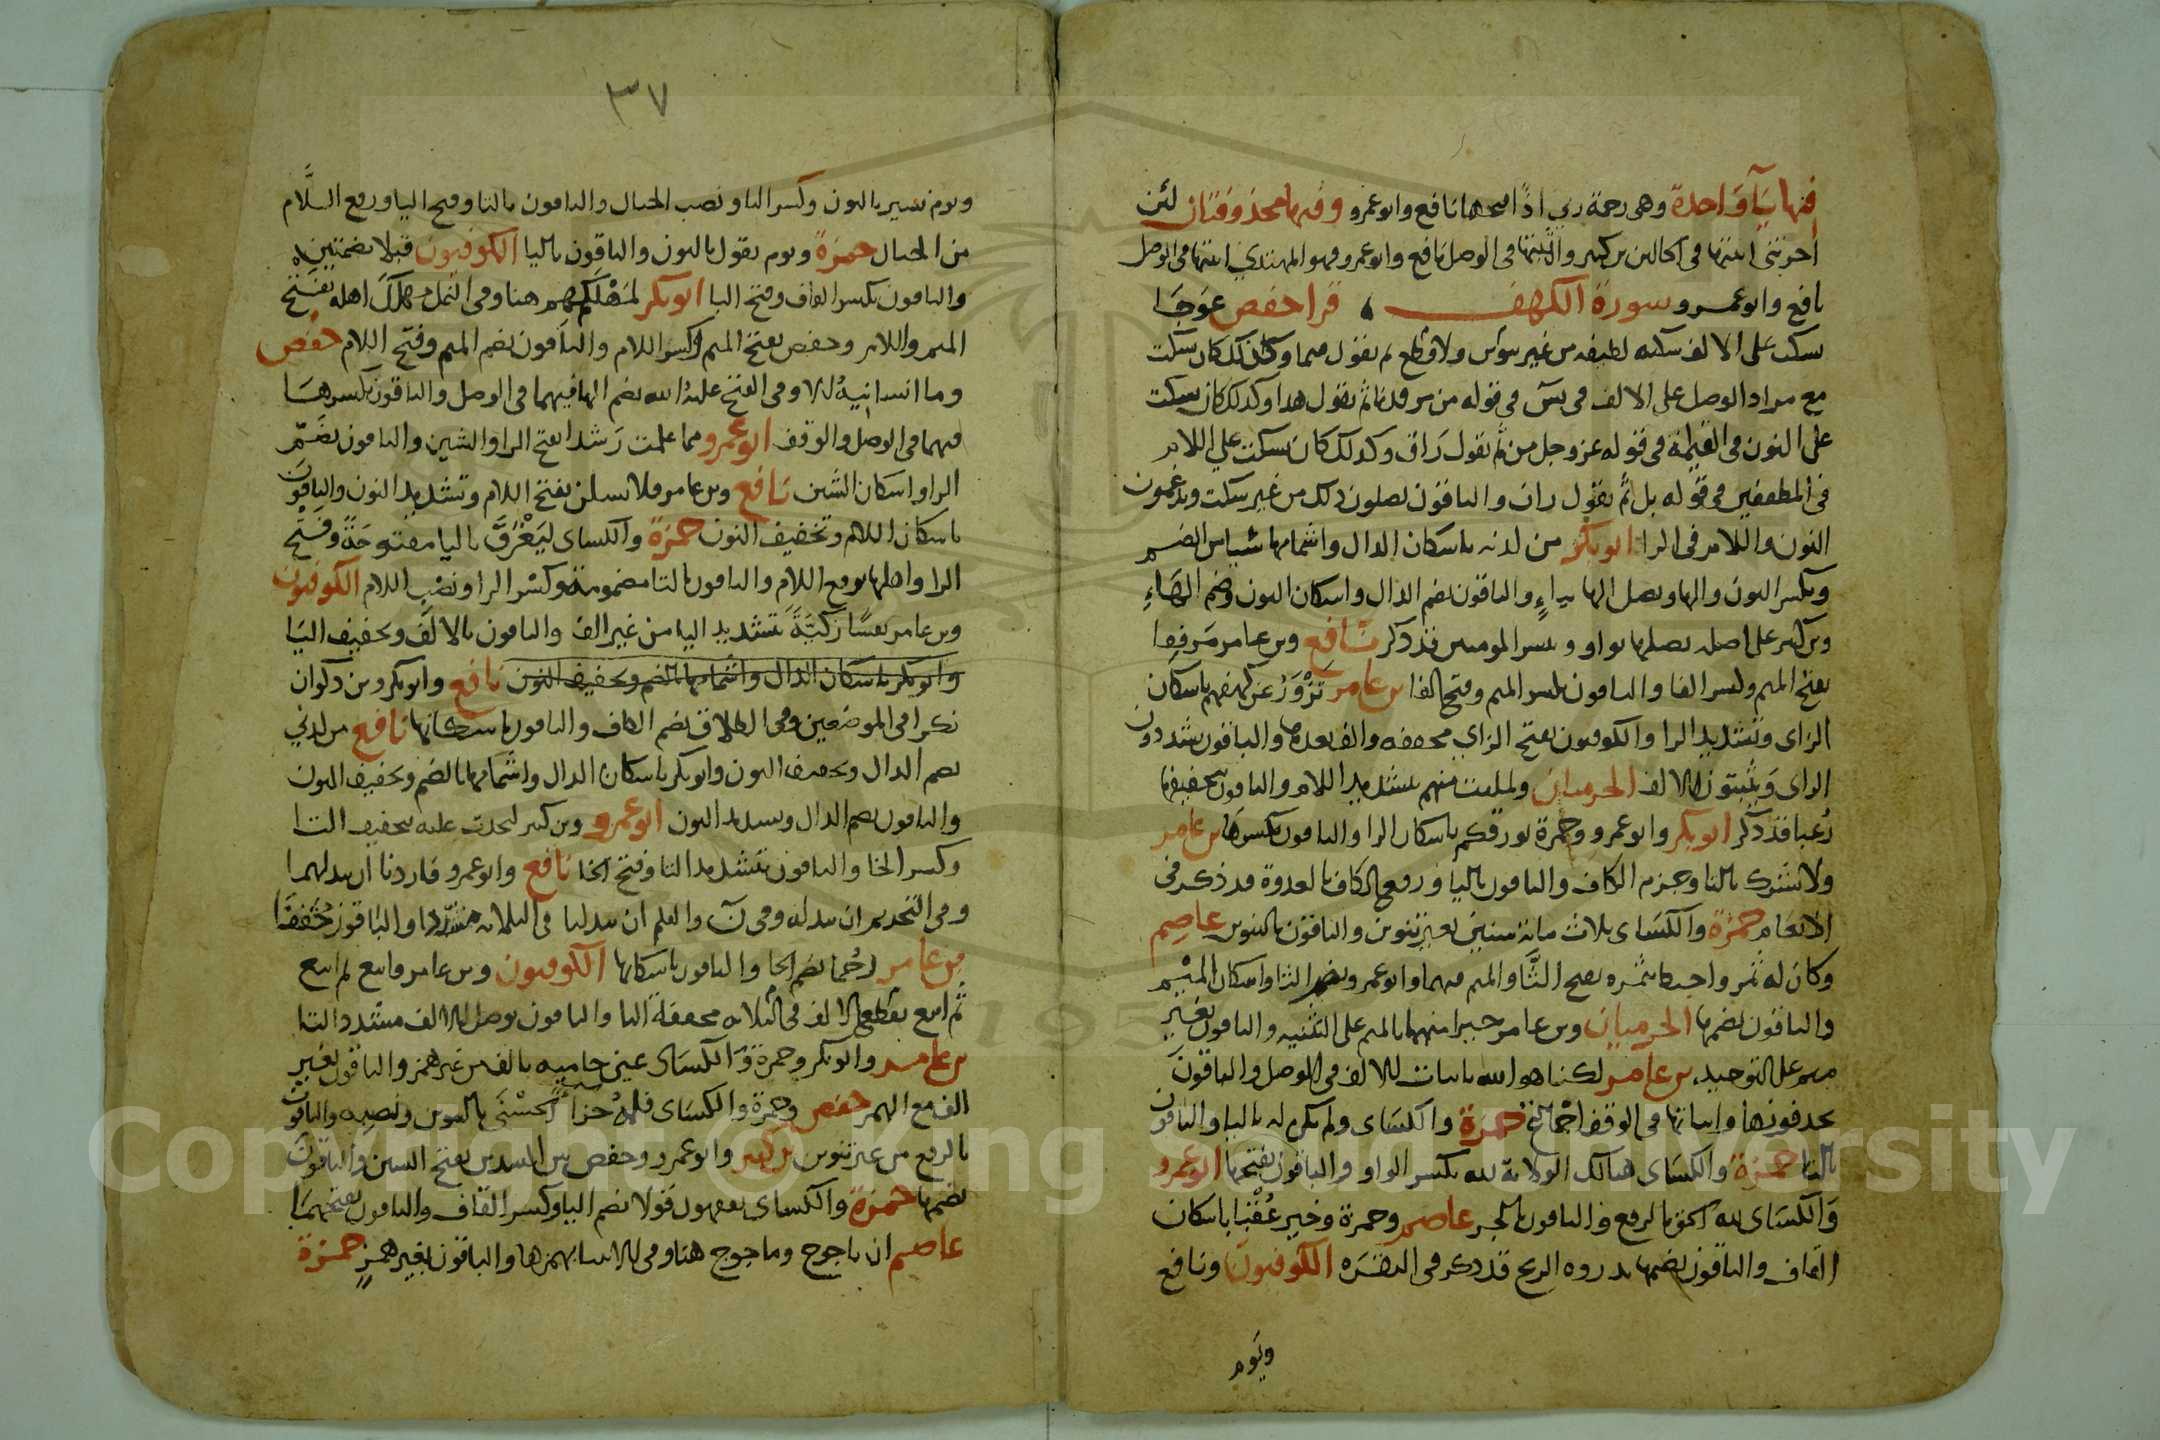 فيها ياء واحدة وهي رحمة ربي اذا فتحها نافع وابو عمرو وفيها محذوفتان لئن
اخرتني اثبتها في الحالين بن كثير واثبتها في الوصل نافع وابو عمرو فهو المهتدي اثبتها في الوصل
نافع وابو عمرو سورة الكهف قرا حفص عوجا
يسكت على الالف سكتة لطيفة من غير تنوين ولا قطع ثم يقول قيما وكذلك كان يسكت
مع مراد الوصل على الالف في يس في قوله من مرقدنا ثم يقول هذا وكذلك كان يسكت
على النون في القيمة في قوله عز وجل من ثم يقول راق وكذلك كان يسكت على اللام
في المطففين في قوله بل ثم يقول ران والباقون يصلون ذلك من غير سكت ويدغمون
النون واللام في الرا ابو بكر من لدنه باسكان الدال واشمامها شيا من الضم
وبكسر النون والها ويصل الها بياء والباقون بضم الدال واسكان النون وضم الهاء
وبن كثير على اصله يصلها بواو ويبشر المومنين قد ذكر نافع وبن عامر مرفقا
بفتح الميم وكسر الفا والباقون بكسر الميم وفتح الفا بن عامر تزور عن كهفهم باسكان
الزاى وتشديد الرا والكوفيون بفتح الزاي مخففه والف بعدها والباقون يشددون
الزاى ويثبتون الالف الحرميان ولملئت منهم بتشديد اللام والباقون بتخفيفها
رعبا قد ذكر ابو بكر وابو عمرو وحمزة بورقكم باسكان الرا والباقون بكسرها بن عامر
ولا تشرك بالتا وجزم الكاف والباقون باليا ورفع الكاف بالغدوة قد ذكر في
الانعام حمزة والكساى ثلاث مائة سنين بغير تنوين والباقون بالتنوين عاصم
وكان له ثمر واحيط بثمره بفتح الثا والميم فيهما وابو عمرو بضم الثا واسكان الميم
والباقون بضمها الحرميان وبن عامر خيرا منهما بالميم على التثنيه والباقون بغير
ميم على التوحيد بن عامر لكنا هو الله باثبات الالف في الوصل والباقون
بحذفونها واثباتها في الوقف اجماع حمزة والكساى ولم يكن له باليا والباقون
بالتا حمزة والكساى هنالك الولاية لله بكسر الواو والباقون بفتحها ابو عمرو
والكساى لله الحق بالرفع والباقون بالجر عاصم وحمزة وخير عقبا باسكان
القاف والباقون بضمها تذروه الريح قد ذكر في البقره الكوفيون ونافع
ويوم
٣٧
ويوم نسير بالنون وكسر اليا ونصب الجبال والباقون بالتا وفتح اليا ورفع اللام
من الجبال حمزة ويوم نقول بالنون والباقون باليا الكوفيون قبلا بضمتين
والباقون بكسر القاف وفتح البا ابو بكر لمهلكهم هنا وفي النمل مهلك اهله بفتح
الميم واللام وحفص بفتح الميم وكسر اللام والباقون بضم الميم وفتح اللام حفص
وما انسانيه الا وفي الفتح عليه الله بضم الها فيهما في الوصل والباقون بكسرها
فيهما في الوصل والوقف ابو عمرو مما علمت رشدا بفتح الرا والشين والباقون بضم
الرا واسكان الشين نافع وبن عامر فلا تسلن بفتح اللام وتشديد النون والباقون
باسكان اللام وتخفيف النون حمزة والكساى ليغرق باليا مفتوحة وفتح
الرا واهلها برفع اللام والباقون بالتا مضمومة وكسر الرا ونصب اللام الكوفيون
وبن عامر نفسا زكية بتشديد اليا من غير الف والباقون بالالف وتخفيف اليا
وابو بكر باسكان الدال واشمامها الضم وتخفيف النون نافع وابو بكر وبن ذكوان
نكرا في الموضعين وفي الطلاق بضم الكاف والباقون باسكانها نافع من لدني
بضم الدال وتخفيف النون وابو بكر باسكان الدال واشمامها الضم وتخفيف النون
والباقون بضم الدال وتشديد النون ابو عمرو وبن كثير لتخذت عليه بتخفيف التا
وكسر الخا والباقون بتشديد التا وفتح الخا نافع وابو عمرو فاردنا ان يبدلهما
وفي التحريم ان يبدله وفي ن والقلم ان يبدلنا في الثلاثة مشددا والباقون مخففا
بن عامر رحما بضم الحا والباقون باسكانها الكوفيون وبن عامر فاتبع ثم اتبع
ثم اتبع بقطع الالف في الثلاثة مخففة التا والباقون بوصل الالف مشدد التا
بن عامر وابو بكر وحمزة والكساى عين حاميه بالف من غير همز والباقون بغير
الف مع الهمز حفص وحمزة والكساى فله جزا الحسنى بالتنوين ونصبه والباقون
بالرفع من غير تنوين بن كثير وابو عمرو وحفص بين السدين بفتح السين والباقون
بضمها حمزة والكساى يفقهون قولا بضم اليا وكسر القاف والباقون بفتحهما
عاصم ان ياجوج وماجوج هنا وفي الانبيا بهمزها والباقون بغير همز حمزة
Copyright © King Saud University
195